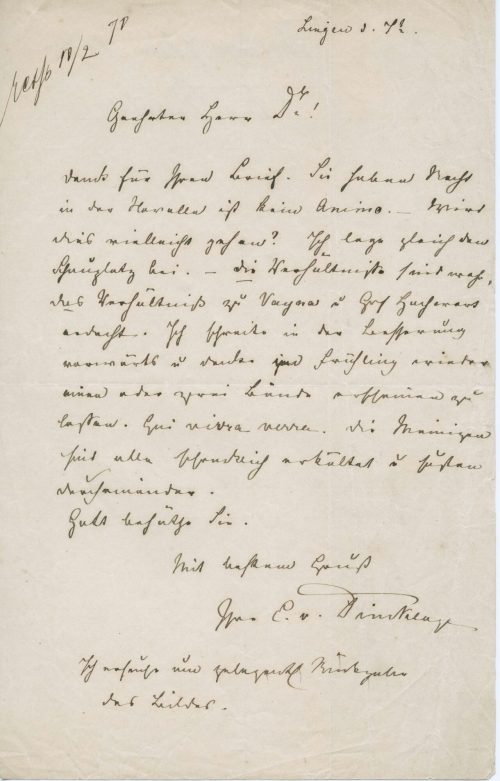 resp 10/2 78
Lingen d. 7t.
Geehrter Herr Dr.!
Dank für Ihren Brief. Sie haben Recht
in der Novelle ist kein Anime. – Wird
dies vielleicht gehen? Ich lege gleich den
Schauplatz bei. – die Verhältnisse sind wahr,
das Verhältniß zu u
erdacht. Ich schreite in der Besserung
vorwärts u denke im Frühling wieder
einen oder zwei Bände erscheinen zu
lassen. Qui vivra verra. Die Meinigen
sind alle schrecklich erkältet u husten
durcheinander.
Gott behüthe Sie.
Mit bestem Gruß
Ihre E. v. Dincklage
Ich ersuche um gelegentl Rückgabe
des Bildes.